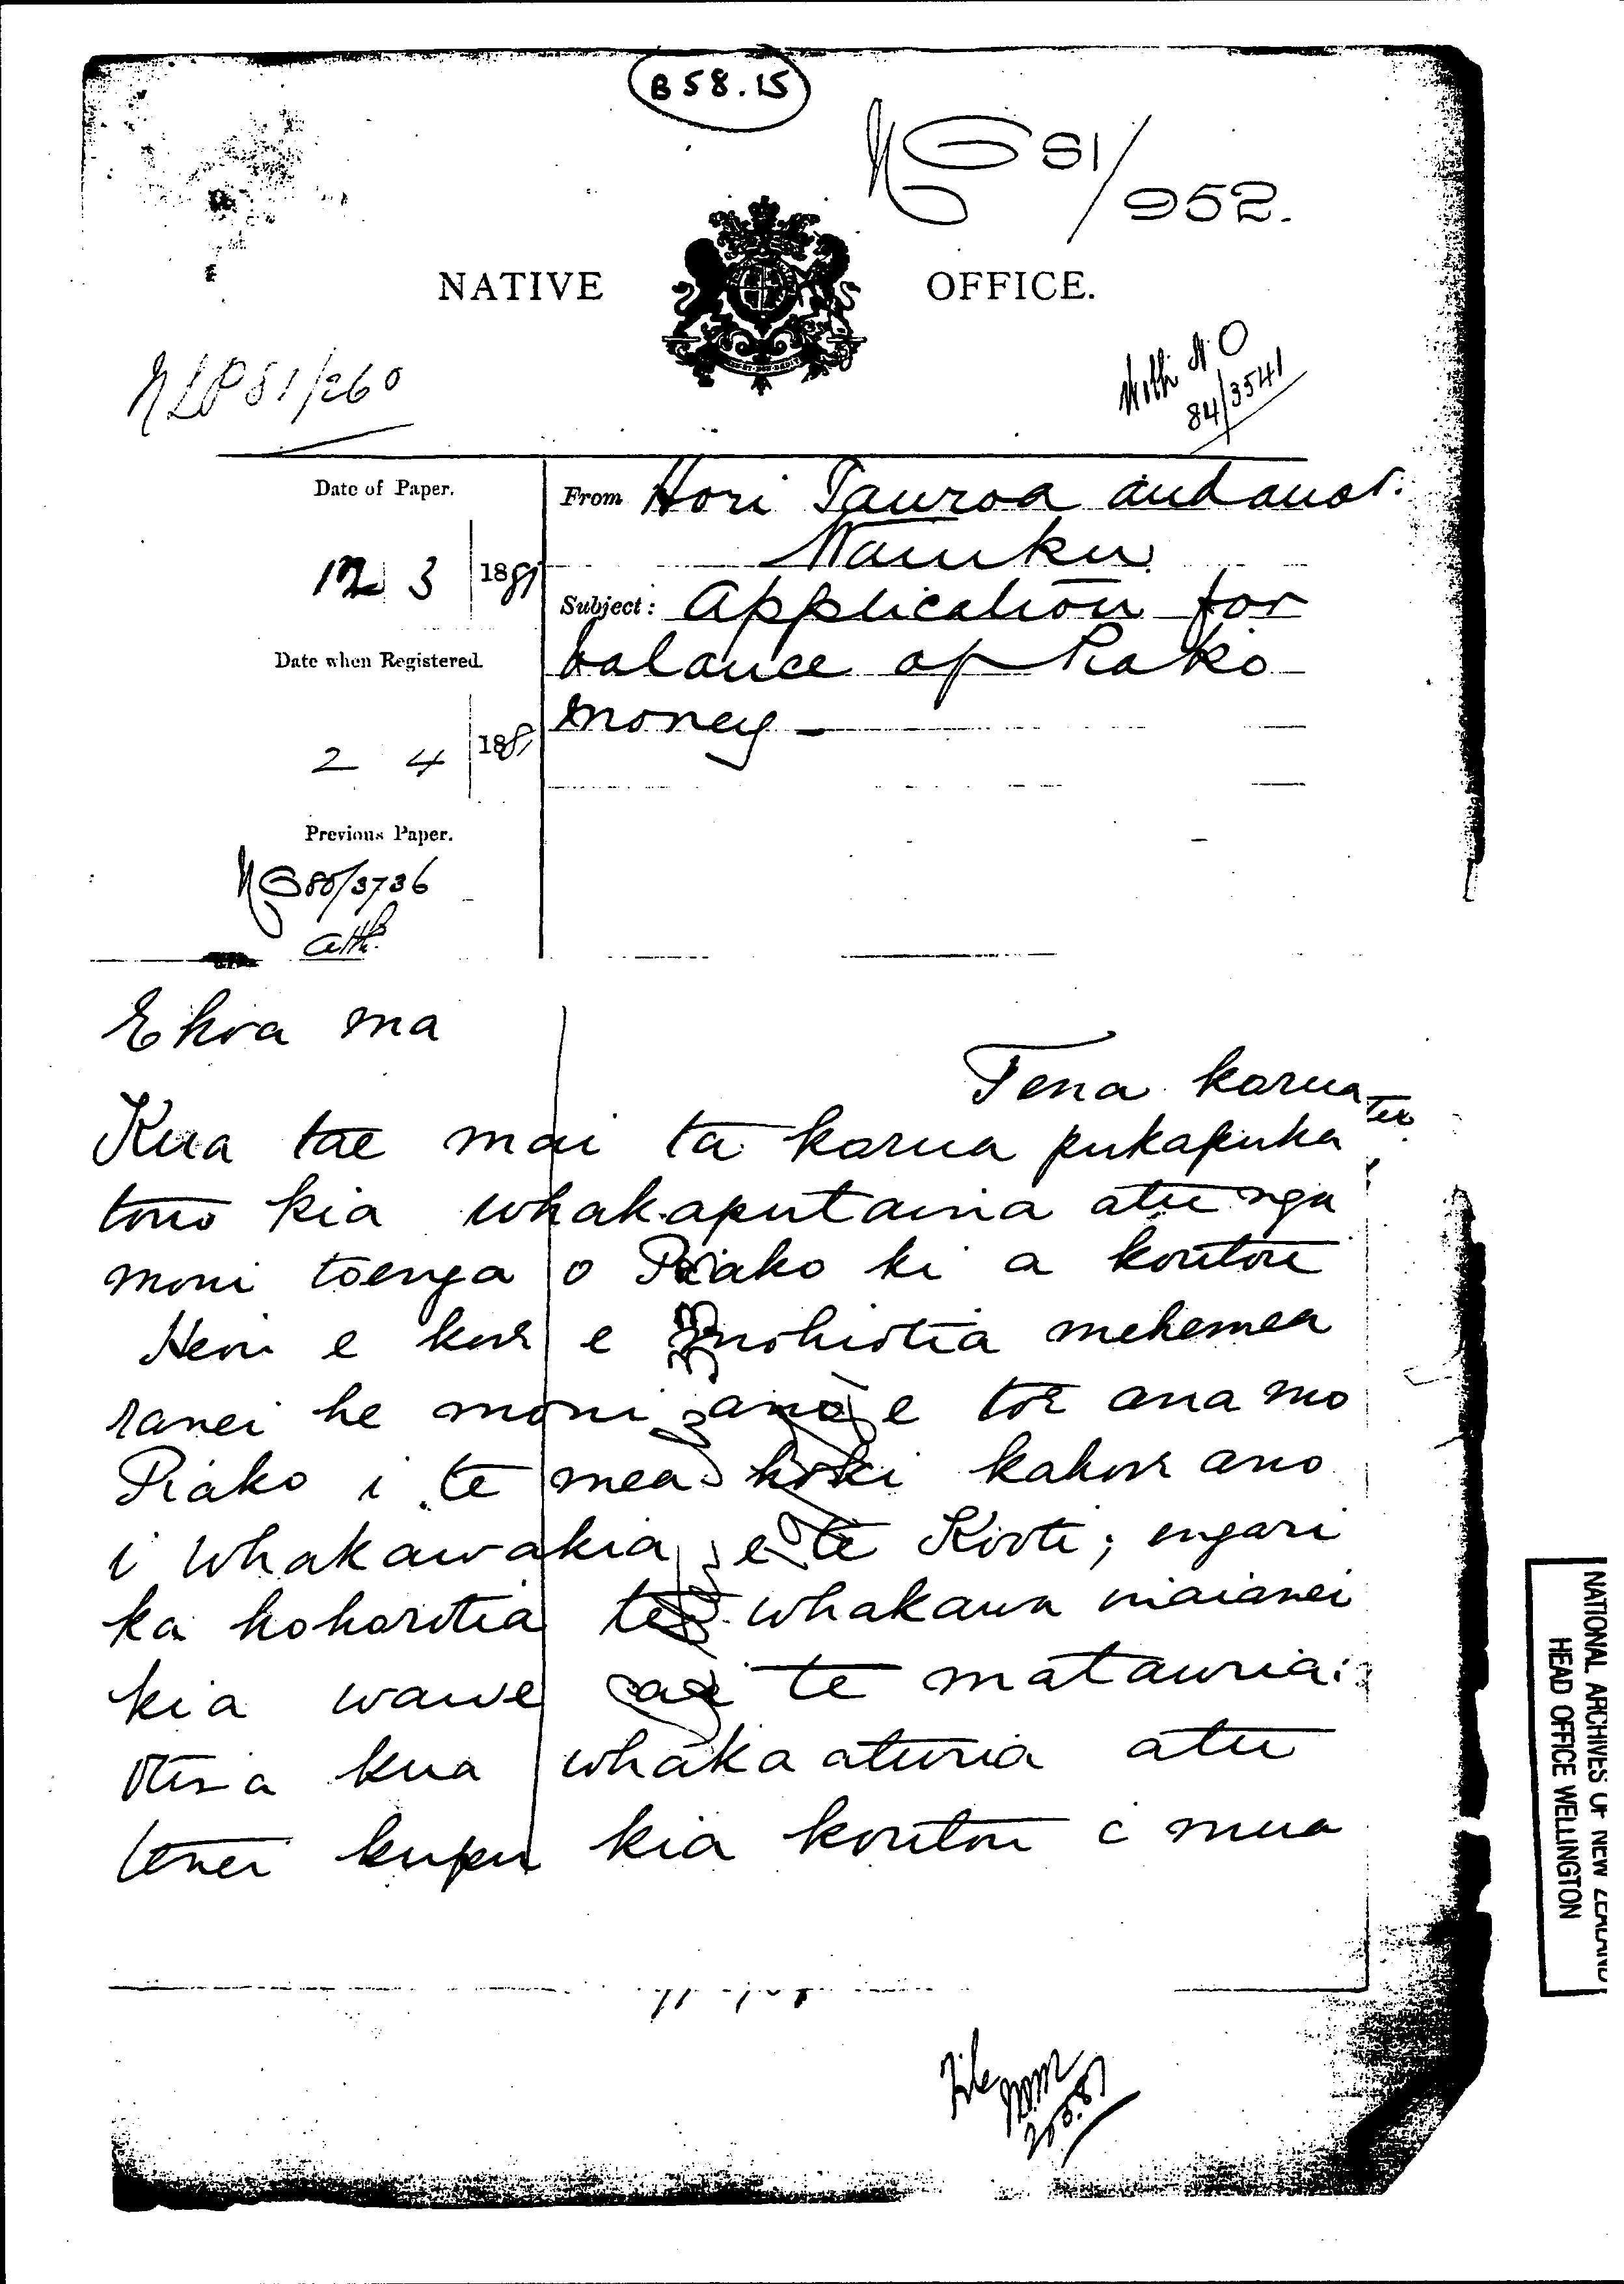 B 58.15
NO 81/952.
NATIVE OFFICE.
NLP 81/260
With N.O 84/3541
Date of Paper.
12 3 1881
From Hori Tauroa and anor.
Waiuku
Subject: Application for
balance of Piako
money
Date when Registered.
2 4 1881
Previous Paper.
NO 80/3736
atth.
E hoa ma
Tena korua
Kua tae mai ta korua pukapuka
tono kia whakaputaina atu nga
moni toenga o Piako ki a koutou
Heoi e kore e mohiotia mehemea
ranei he moni ano e toe ana mo
Piako i te mea hoki kahore ano
i whakawakia e te Kooti; engari
ka hohorotia te whakawa maianei
kia wawe ai te matauria:
otira kua whakaaturia atu
tenei kupu kia koutou i mua
File
NATIONAL ARCHIVES OF NEW ZEALAND
HEAD OFFICE WELLINGTON